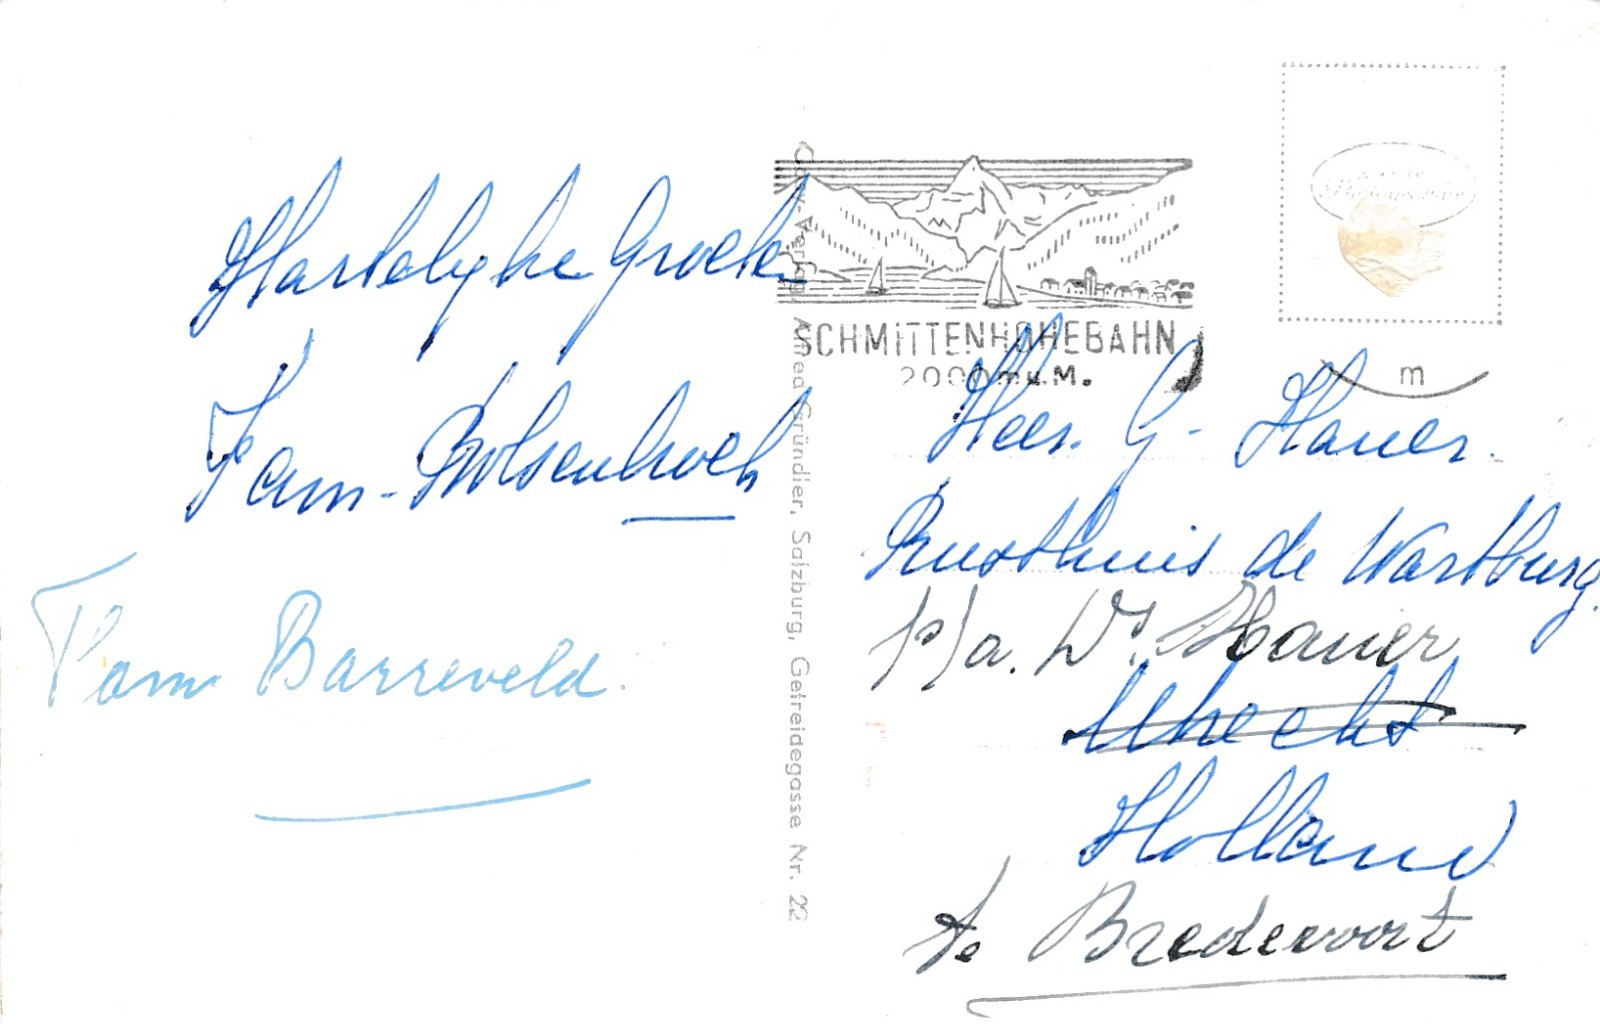 Hartelyke Groeten
Fam-
Fam Barreveld.
Cosy-Verlag Alfred Gründler, Salzburg, Getreidegasse Nr. 22
SCHMITTENHÖHEBAHN
2000 m ü.M.
m
Heer. G- Hauer.
Rusthuis de Wartburg.
p/a. Ds. Hauer
Utrecht
Holland
te Bredevoort